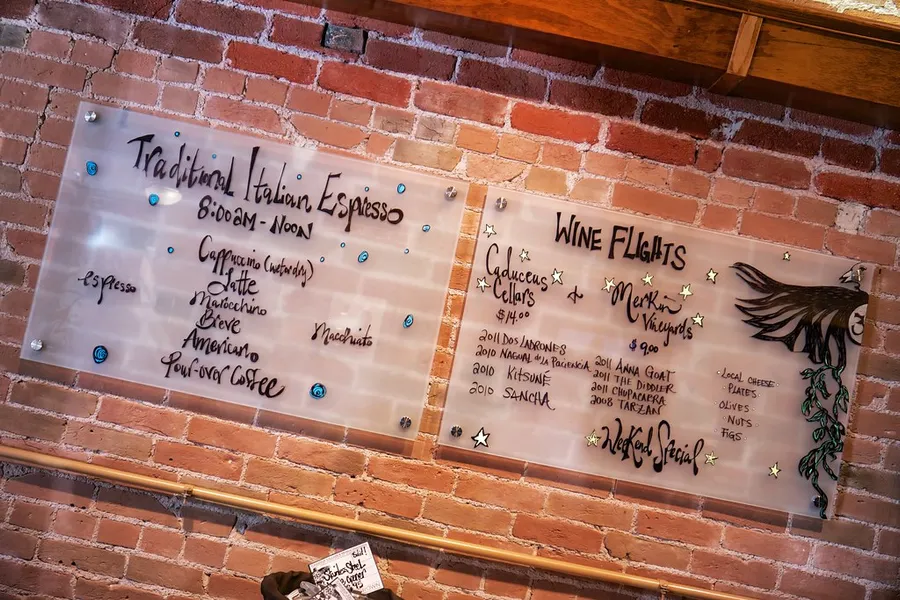 Traditional Italian Espresso
8:00am - Noon
espresso
Cappuccino (wet or dry)
Latte
Marocchino
Breve
Americano
Pour-over Coffee
Macchiato
WINE FLIGHTS
Caduceus
Cellars
$14.00
&
Merkin
Vineyards
$9.00
2011 DOS LADRONES
2010 NAGUAL de la PACIENCIA
2010 KITSUNÉ
2010 SANCHA
2011 ANNA GOAT
2011 THE DIDDLER
2011 CHUPACABRA
2008 TARZAN
LOCAL CHEESE
PLATES
OLIVES
NUTS
FIGS
WeeKend Special
Stainless Steel